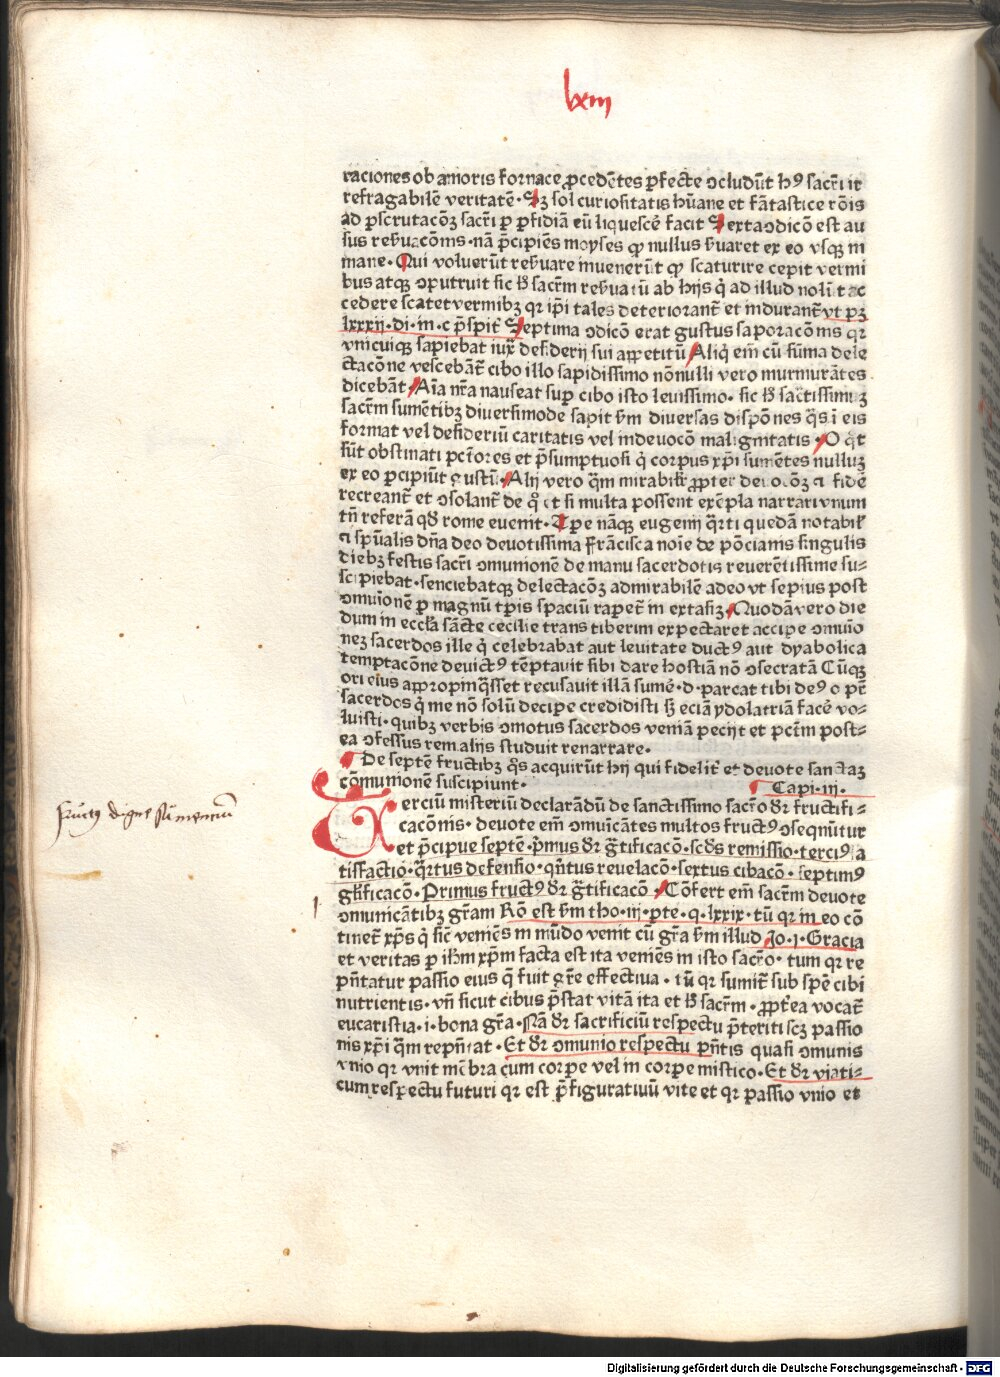 lxiii
raciones ob amoris fornace ꝓcedētes ꝑfecte ↄcludūt hꝰ sacrī ir
refragabilē veritatē · Sꝫ sol curiositatis hūane et fātastice rōis
ad ꝑscrutacōꝫ sacrī ꝑ ꝑfidiā eū liquescē facit Sexta ↄdicō est au
sus reẜuacōnis · nā p̄cipiēs moyses ꝙ nullus ẜuaret ex eo vsqꝫ in
mane · Qui voluerūt reẜuare inuenerūt ꝙ scaturire cepit vermi
bus atqꝫ ↄputruit sic hͦ sacrm̄ reẜuatū ab hijs q̇ ad illud nolūt ac
cedere scatet vermibꝫ qr ip̄i tales deteriorant̄ et indurant̄ vt pꝫ
lxxxij · di · in · c p̄spit̄ Septima ↄdicō erat gustus saporacōnis qr
vnicuiqꝫ sapiebat iux̄ desiderij sui appetitū Aliq̇ em̄ cū sūma dele
ctacōne vescebāt̄ cibo illo sapidissimo nōnulli vero murmurātes
dicebāt · Aīa nr̄a nauseat suꝑ cibo isto leuissimo · sic hͦ sāctissimuꝫ
sacrm̄ sumētibꝫ diuersimode sapit ẜm diuersas dispōnes q̄s ī eis
format vel desideriū caritatis vel indevocō malignitatis · O q̄t
sūt obstinati pctōres et p̄sumptuosi q̇ corpus xp̄i sumētes nulluꝫ
ex eo ꝑcipiūt gustū · Alij vero q̄m mirabilr̄ ꝓpter deuocōꝫ ⁊ fidē
recreant̄ et ↄsolant̄ de qͦ et si multa possent exēpla narrari vnum
tn̄ referā qd̄ rome euenit · Tꝑe nāqꝫ eugenij q̄rti quedā notabil̄
⁊ sp̄ualis dn̄a deo devotissima frācisca noīe de pōcianis singulis
diebꝫ festis sacrī ↄmunionē de manu sacerdotis reverētissime su⸗
scipiebat · senciebatqꝫ delectacōꝫ admirabilē adeo vt sepius post
ↄmuīonē ꝑ magnū tp̄is spaciū rapet̄ in extasiꝫ · Quodā vero die
dum in eccl̄a sācte cecilie trans tiberim expectaret accipe ↄmuīo
neꝫ sacerdos ille q̇ celebrabat aut levitate ductꝰ aut dyabolica
temptacōne devictꝰ tēptavit sibi dare hostiā nō ↄsecratā Cūqꝫ
ori eius appropinq̄sset recusauit illā sumē · d · parcat tibi deꝰ o pr̄
sacerdos q̇ me nō solū decipe credidisti sꝫ eciā ydolatriā facē vo⸗
luisti · quibꝫ verbis ↄmotus sacerdos veniā pecijt et pctm̄ post⸗
ea ↄfessus rem alijs studuit renarrare ·
De septē fructibꝫ q̄s acquirūt hij qui fidelit̄ et devote sanctaꝫ
cōmunionē suscipiunt · Capi · iij ·
Terciū misteriū declarādū de sanctissimo sacrō dr̄ fructifi⸗
cacōnis · devote em̄ ↄmuīcātes multos fructꝰ ↄsequūtur
et p̄cipue septē · p̄mus dr̄ gr̄tificacō · scd̄s remissio · terciꝰ sa
tisfactio · q̄rtus defensio · qn̄tus reuelacō · sextus cibacō · septimꝰ
gl̄ificacō · Primus fructꝰ dr̄ gr̄tificacō · Cōfert em̄ sacrm̄ devote
ↄmunicātibꝫ gr̄am Rō est ẜm tho · iij · pte · q · lxxix · tū qr in eo cō
tinet̄ xp̄s q̇ sic̄ veniēs in mūdo venit cū gr̄a ẜm illud Jo · j · Gracia
et veritas ꝑ ih̄m xp̄m facta est ita veniēs in isto sacrō · tum qr re
pn̄tatur passio eius q̄ fuit gr̄e effectiua · tū qr sumit̄ sub spē cibi
nutrientis · vn̄ sicut cibus p̄stat vitā ita et hͦ sacrm̄ · ꝓpt̄ea vocat̄
eucaristia · i · bona gr̄a · Nā dr̄ sacrificiū respectu p̄teriti scꝫ passio
nis xp̄i q̄m repn̄tat · Et dr̄ ↄmunio respectu pn̄tis quasi ↄmunis
vnio qr vnit mēbra cum corpe vel in corpe mistico · Et dr̄ viati⸗
cum respectu futuri qr est p̄figuratiuū vite et qr passio vnio et
fructꝰ digne sumenciū
1
Digitalisierung gefördert durch die Deutsche Forschungsgemeinschaft - DFG